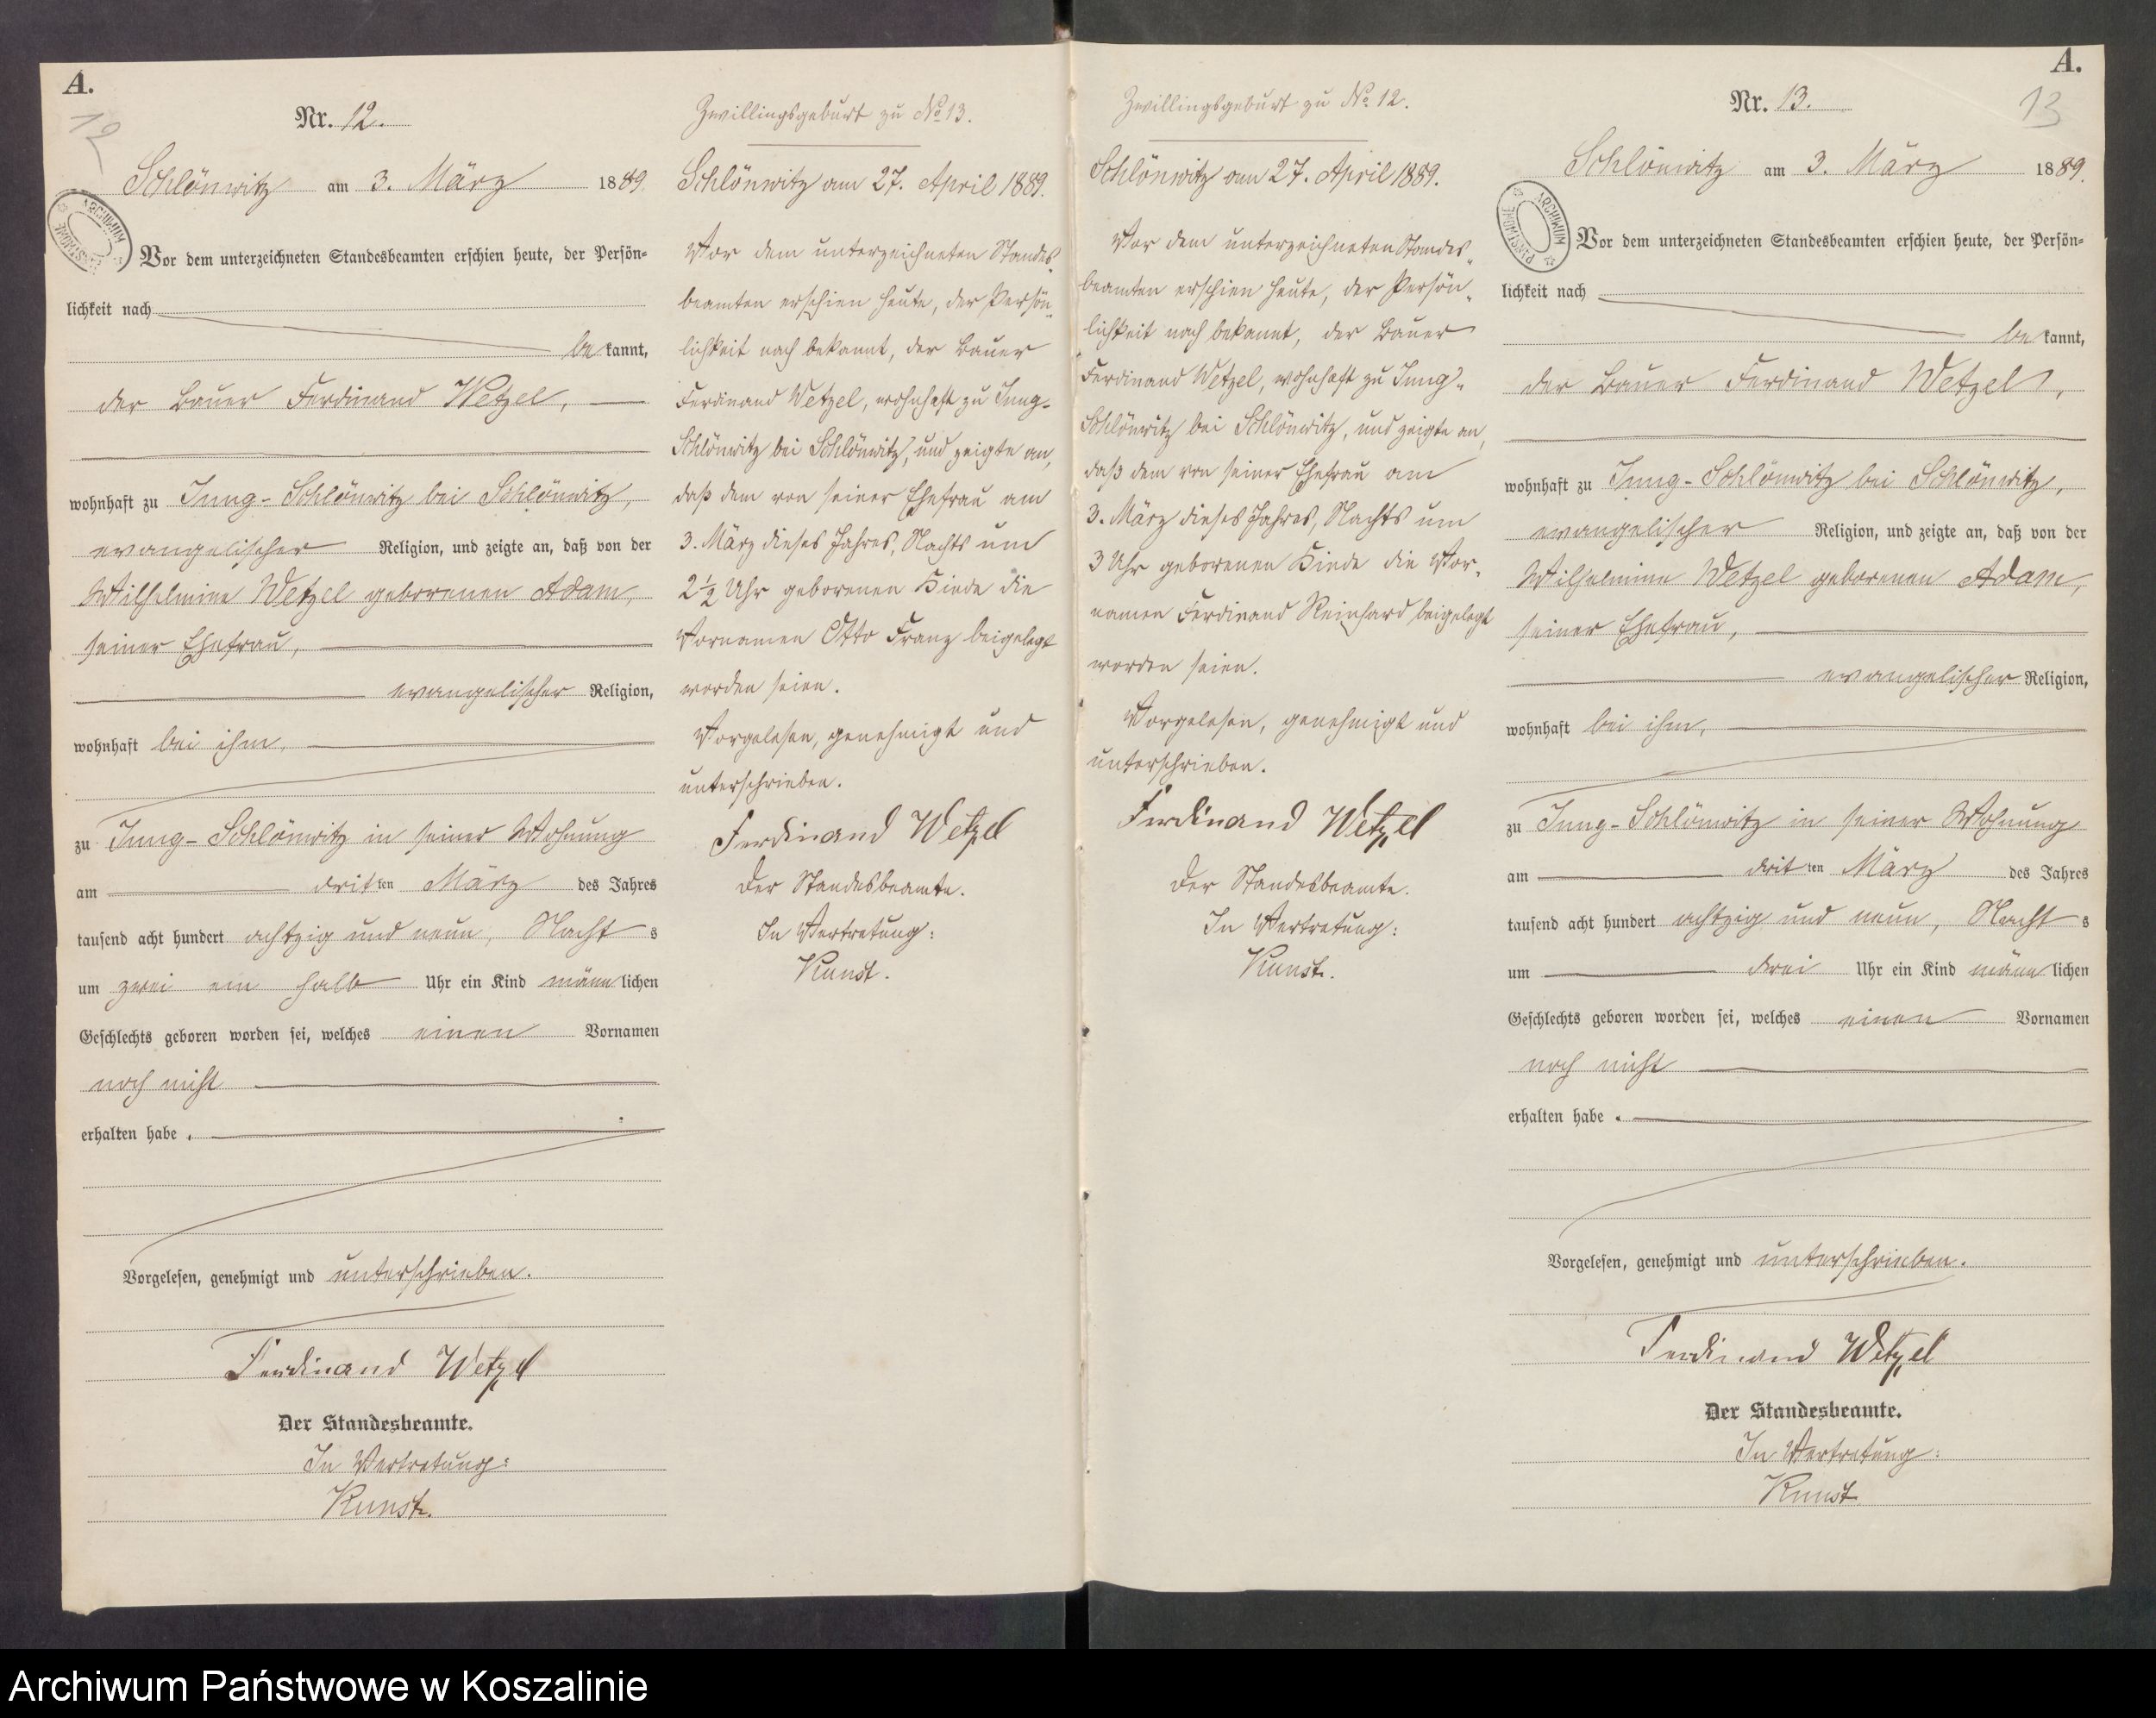 A.
12
Nr. 12.
Schlönwitz am 3. März 1889.
ARCHIWUM PAŃSTWOWE
Vor dem unterzeichneten Standesbeamten erschien heute, der Persön-
lichkeit nach
be kannt,
der Bauer Ferdinand Wetzel,
wohnhaft zu Jung-Schlönwitz bei Schlönwitz,
evangelischer Religion, und zeigte an, daß von der
Wilhelmine Wetzel geborenen Adam,
seiner Ehefrau,
evangelischer Religion,
wohnhaft bei ihm,
zu Jung-Schlönwitz in seiner Wohnung
am dritten März des Jahres
tausend acht hundert achtzig und neun, Nachts
um zwei ein halb Uhr ein Kind männlichen
Geschlechts geboren worden sei, welches einen Vornamen
noch nicht
erhalten habe.
Vorgelesen, genehmigt und unterschrieben.
Ferdinand Wetzel
Der Standesbeamte.
In Vertretung:
Kunst.
Zwillingsgeburt zu No 13.
Schlönwitz am 27. April 1889.
Vor dem unterzeichneten Standes-
beamten erschien heute, der Persön-
lichkeit nach bekannt, der Bauer
Ferdinand Wetzel, wohnhaft zu Jung-
Schlönwitz bei Schlönwitz, und zeigte an,
daß dem von seiner Ehefrau am
3. März dieses Jahres, Nachts um
2½ Uhr geborenen Kinde die
Vornamen Otto Franz beigelegt
worden seien.
Vorgelesen, genehmigt und
unterschrieben.
Ferdinand Wetzel
Der Standesbeamte.
In Vertretung:
Kunst.
Zwillingsgeburt zu No 12.
Schlönwitz am 27. April 1889.
Vor dem unterzeichneten Standes-
beamten erschien heute, der Persön-
lichkeit nach bekannt, der Bauer
Ferdinand Wetzel, wohnhaft zu Jung-
Schlönwitz bei Schlönwitz, und zeigte an,
daß dem von seiner Ehefrau am
3. März dieses Jahres, Nachts um
3 Uhr geborenen Kinde die Vor-
namen Ferdinand Reinhard beigelegt
worden seien.
Vorgelesen, genehmigt und
unterschrieben.
Ferdinand Wetzel
Der Standesbeamte.
In Vertretung:
Kunst.
A.
13
Nr. 13.
Schlönwitz am 3. März 1889.
ARCHIWUM PAŃSTWOWE
Vor dem unterzeichneten Standesbeamten erschien heute, der Persön-
lichkeit nach
be kannt,
der Bauer Ferdinand Wetzel,
wohnhaft zu Jung-Schlönwitz bei Schlönwitz,
evangelischer Religion, und zeigte an, daß von der
Wilhelmine Wetzel geborenen Adam,
seiner Ehefrau,
evangelischer Religion,
wohnhaft bei ihm,
zu Jung-Schlönwitz in seiner Wohnung
am dritten März des Jahres
tausend acht hundert achtzig und neun, Nachts
um drei Uhr ein Kind männlichen
Geschlechts geboren worden sei, welches einen Vornamen
noch nicht
erhalten habe.
Vorgelesen, genehmigt und unterschrieben.
Ferdinand Wetzel
Der Standesbeamte.
In Vertretung:
Kunst
Archiwum Państwowe w Koszalinie